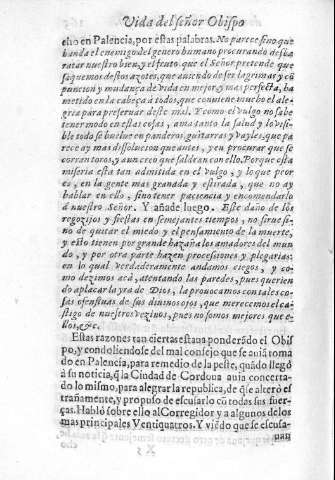 Vida del señor Obispo
esto en Palencia, por estas palabras. No parece sino que
banda el enemigo del genero humano procurando desba
ratar nuestro bien, y el fruto que el Señor pretende que
saquemos destos azotes, que auiendo de ser lagrimas y cõ
puncion y mudança de vida en mejor y mas perfecta, ha
metido en la cabeça à todos, que conuiene mucho el ale-
gria para preseruar deste mal. Y como el vulgo no sabe
tener modo en estas cosas, ama tanto la salud y lo visi-
ble todo se buelue en panderos, guitarras y bayles, que pa
rece ay mas dissolucion que antes, y en procurar que se
corran toros, y aun creo que saldran con ello. Porque esta
miseria está tan admitida en el vulgo, y lo que peor
es, en la gente mas granada y estirada, que no ay
hablar en ello, sino tener paciencia y encomendarlo
à nuestro Señor. Y añade luego. Este daño de los
regozijos y fiestas en semejantes tiempos, no sirue si-
no de quitar el miedo y el pensamiento de la muerte,
y esto tienen por grande hazaña los amadores del mun
do, y por otra parte hazen processiones y plegarias:
en lo qual verdaderamente andamos ciegos, y co-
mo dezimos acà, atentando las paredes, pues querien
do aplacar la yra de Dios, la prouocamos con tales co-
sas ofensiuas de sus diuinos ojos, que merecemos el ca-
stigo de nuestros vezinos, pues no somos mejores que e-
llos, &c.
Estas razones tan ciertas estaua ponderãdo el Obis
po, y condoliendose del mal consejo que se auiá toma
do en Palencia, para remedio de la peste, quãdo llegó
à su noticia, q̃ la Ciudad de Cordoua auia concerta-
do lo mismo, para alegrar la republica, de q̃ se alterò es
trañamente, y propuso de escusarlo cõ todas sus fuer-
ças. Habló sobre ello al Corregidor y a algunos de los
mas principales Ventiquatros. Y viẽdo que se escusa-
uan